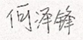 何泽锋